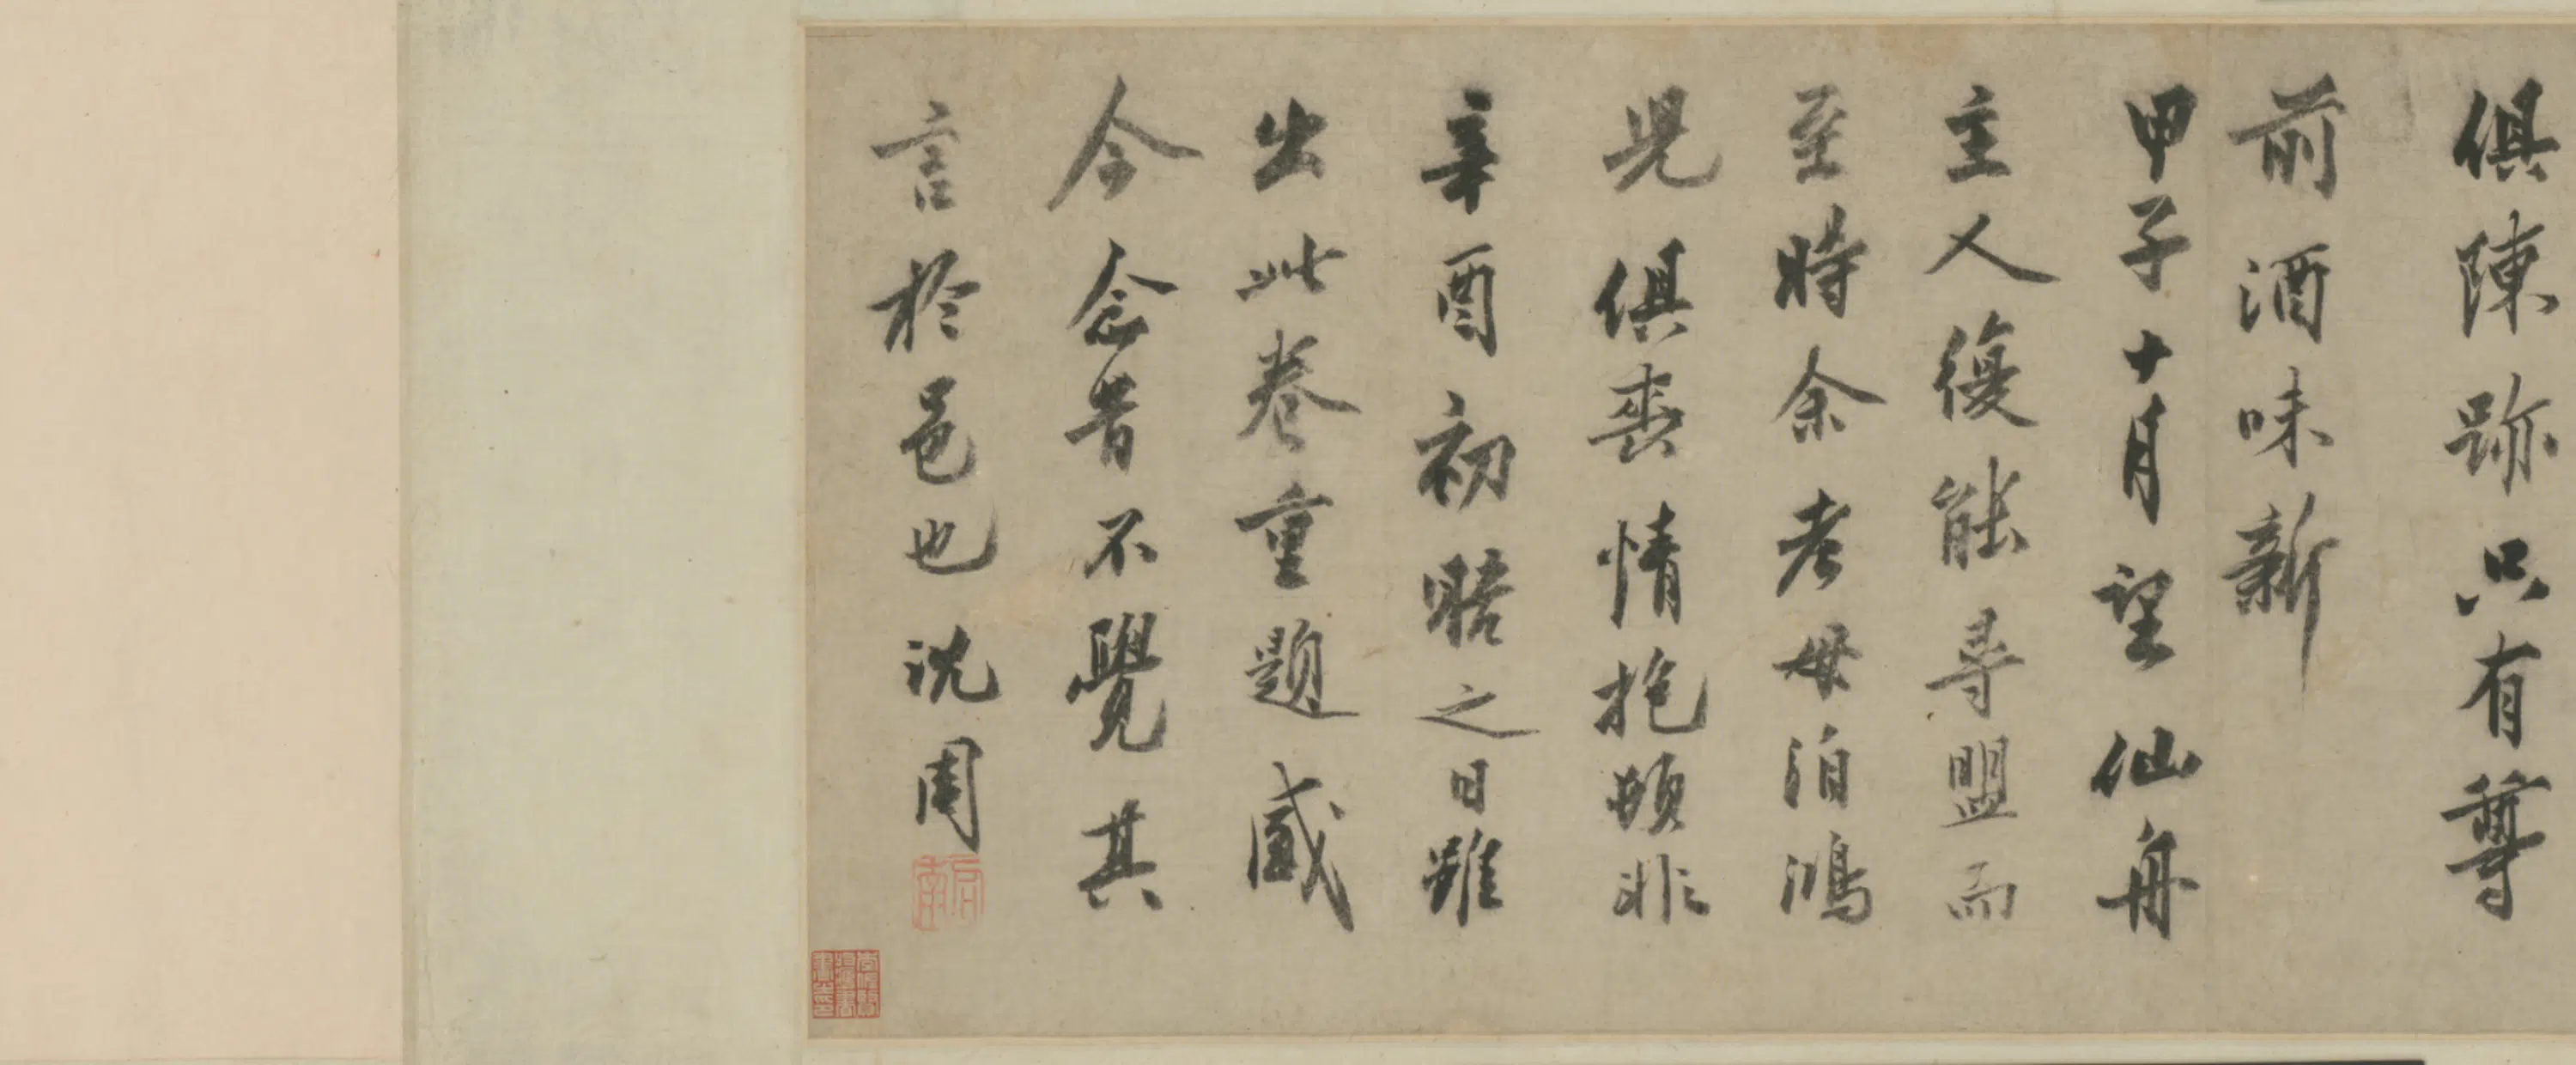 俱陳跡只有尊
前酒味新
甲子十月望仙舟
主人復能尋盟而
至時余老母泊鴻
児俱喪情抱頓非
辛酉初瞻之日雖
出此卷重題感
今念昔不覺其
言於邑也沈周
啟南